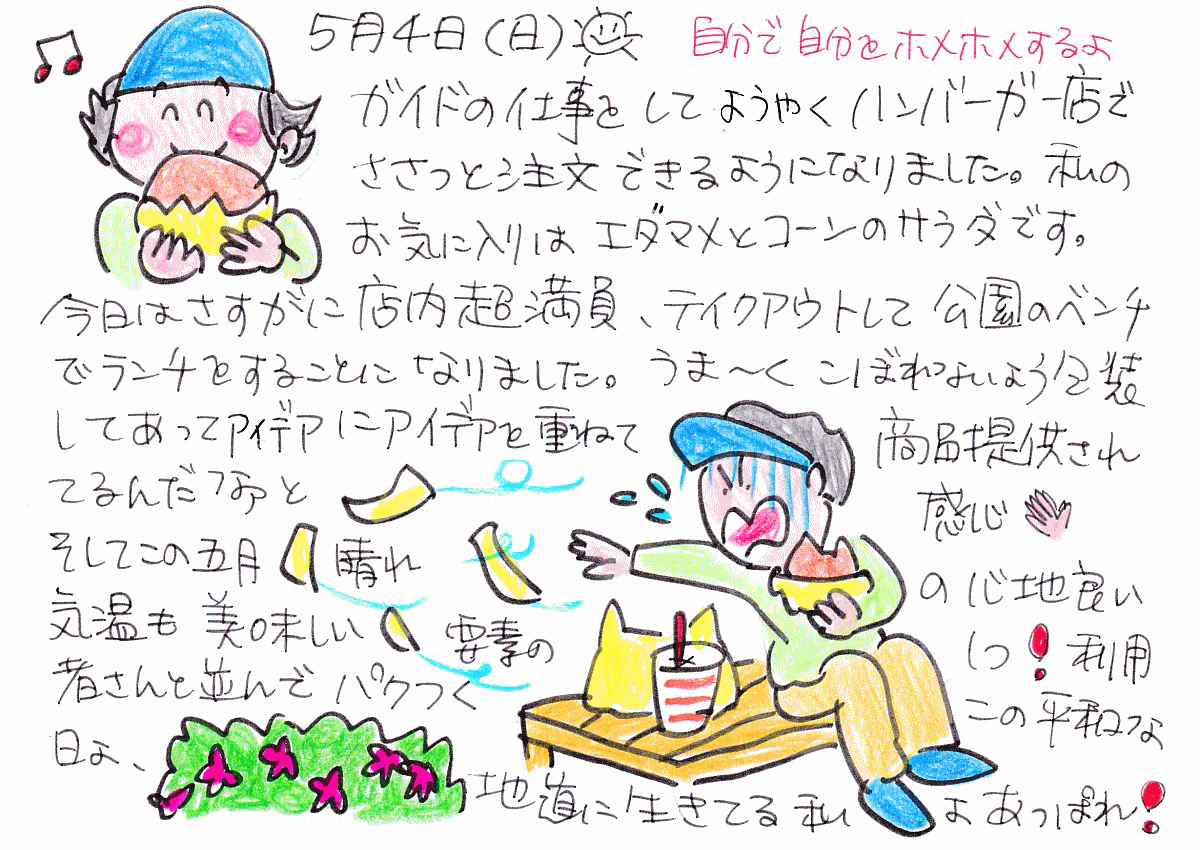 5月4日(日) 自分で自分をホメホメするよ
ガイドの仕事をして ようやくハンバーガー店で
ささっと注文できるようになりました。私の
お気に入りは エダマメとコーンのサラダです。
今日はさすがに店内超満員、テイクアウトして 公園のベンチ
でランチをすることになりました。うま〜く こぼれないよう包装
してあってアイデアにアイデアを重ねて 商品提供され
てるんだなあと 感心
そしてこの五月晴れの心地良い
気温も美味しい要素の1つ!利用
者さんと並んでパクつくこの平和な
日よ、地道に生きてる私よあっぱれ!